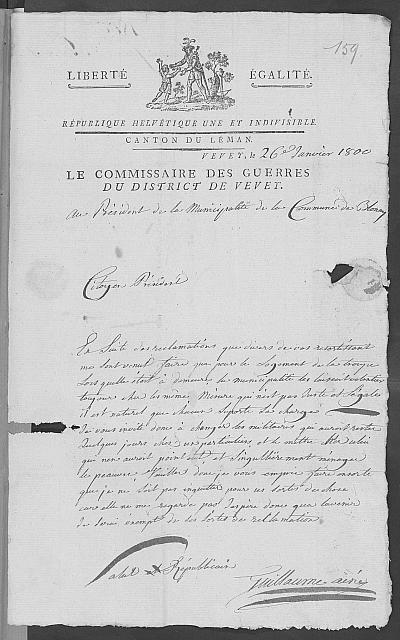 159
LIBERTÉ ÉGALITÉ.
RÉPUBLIQUE HELVÉTIQUE UNE ET INDIVISIBLE.
CANTON DU LÉMAN.
VEVEY, le 26e Janvier 1800
LE COMMISSAIRE DES GUERRES
DU DISTRICT DE VEVEY.
Au Président de la Municipalité de la Commune de Blonay
Citoyen Président
En Suite des reclamations que divers de vos ressortissant
me sont venut faire que pour le Logement de la troupe
Lors quelle étoit a demeure la municipalité les laissent
toujour chez les même, Mesure qui n'est pas Juste et Légales
il est naturel que chacun suporte sa charge
Je vous invite donc à changer les militaires qui auront restée
quelques jours chez un particuliers et de mettre chez celui
qui n'en auroit point eut et singulièrement ménager
le peauvre donc je vous emprie faire en sorte
que je ne soit pas inquietter pour ses sortes de chose
car elle ne me regarde pas J'espère donc qu'a l'avenir
Je serai exempt de ses sortes de reclamation
Salut et Républicain
Guillaume ainé